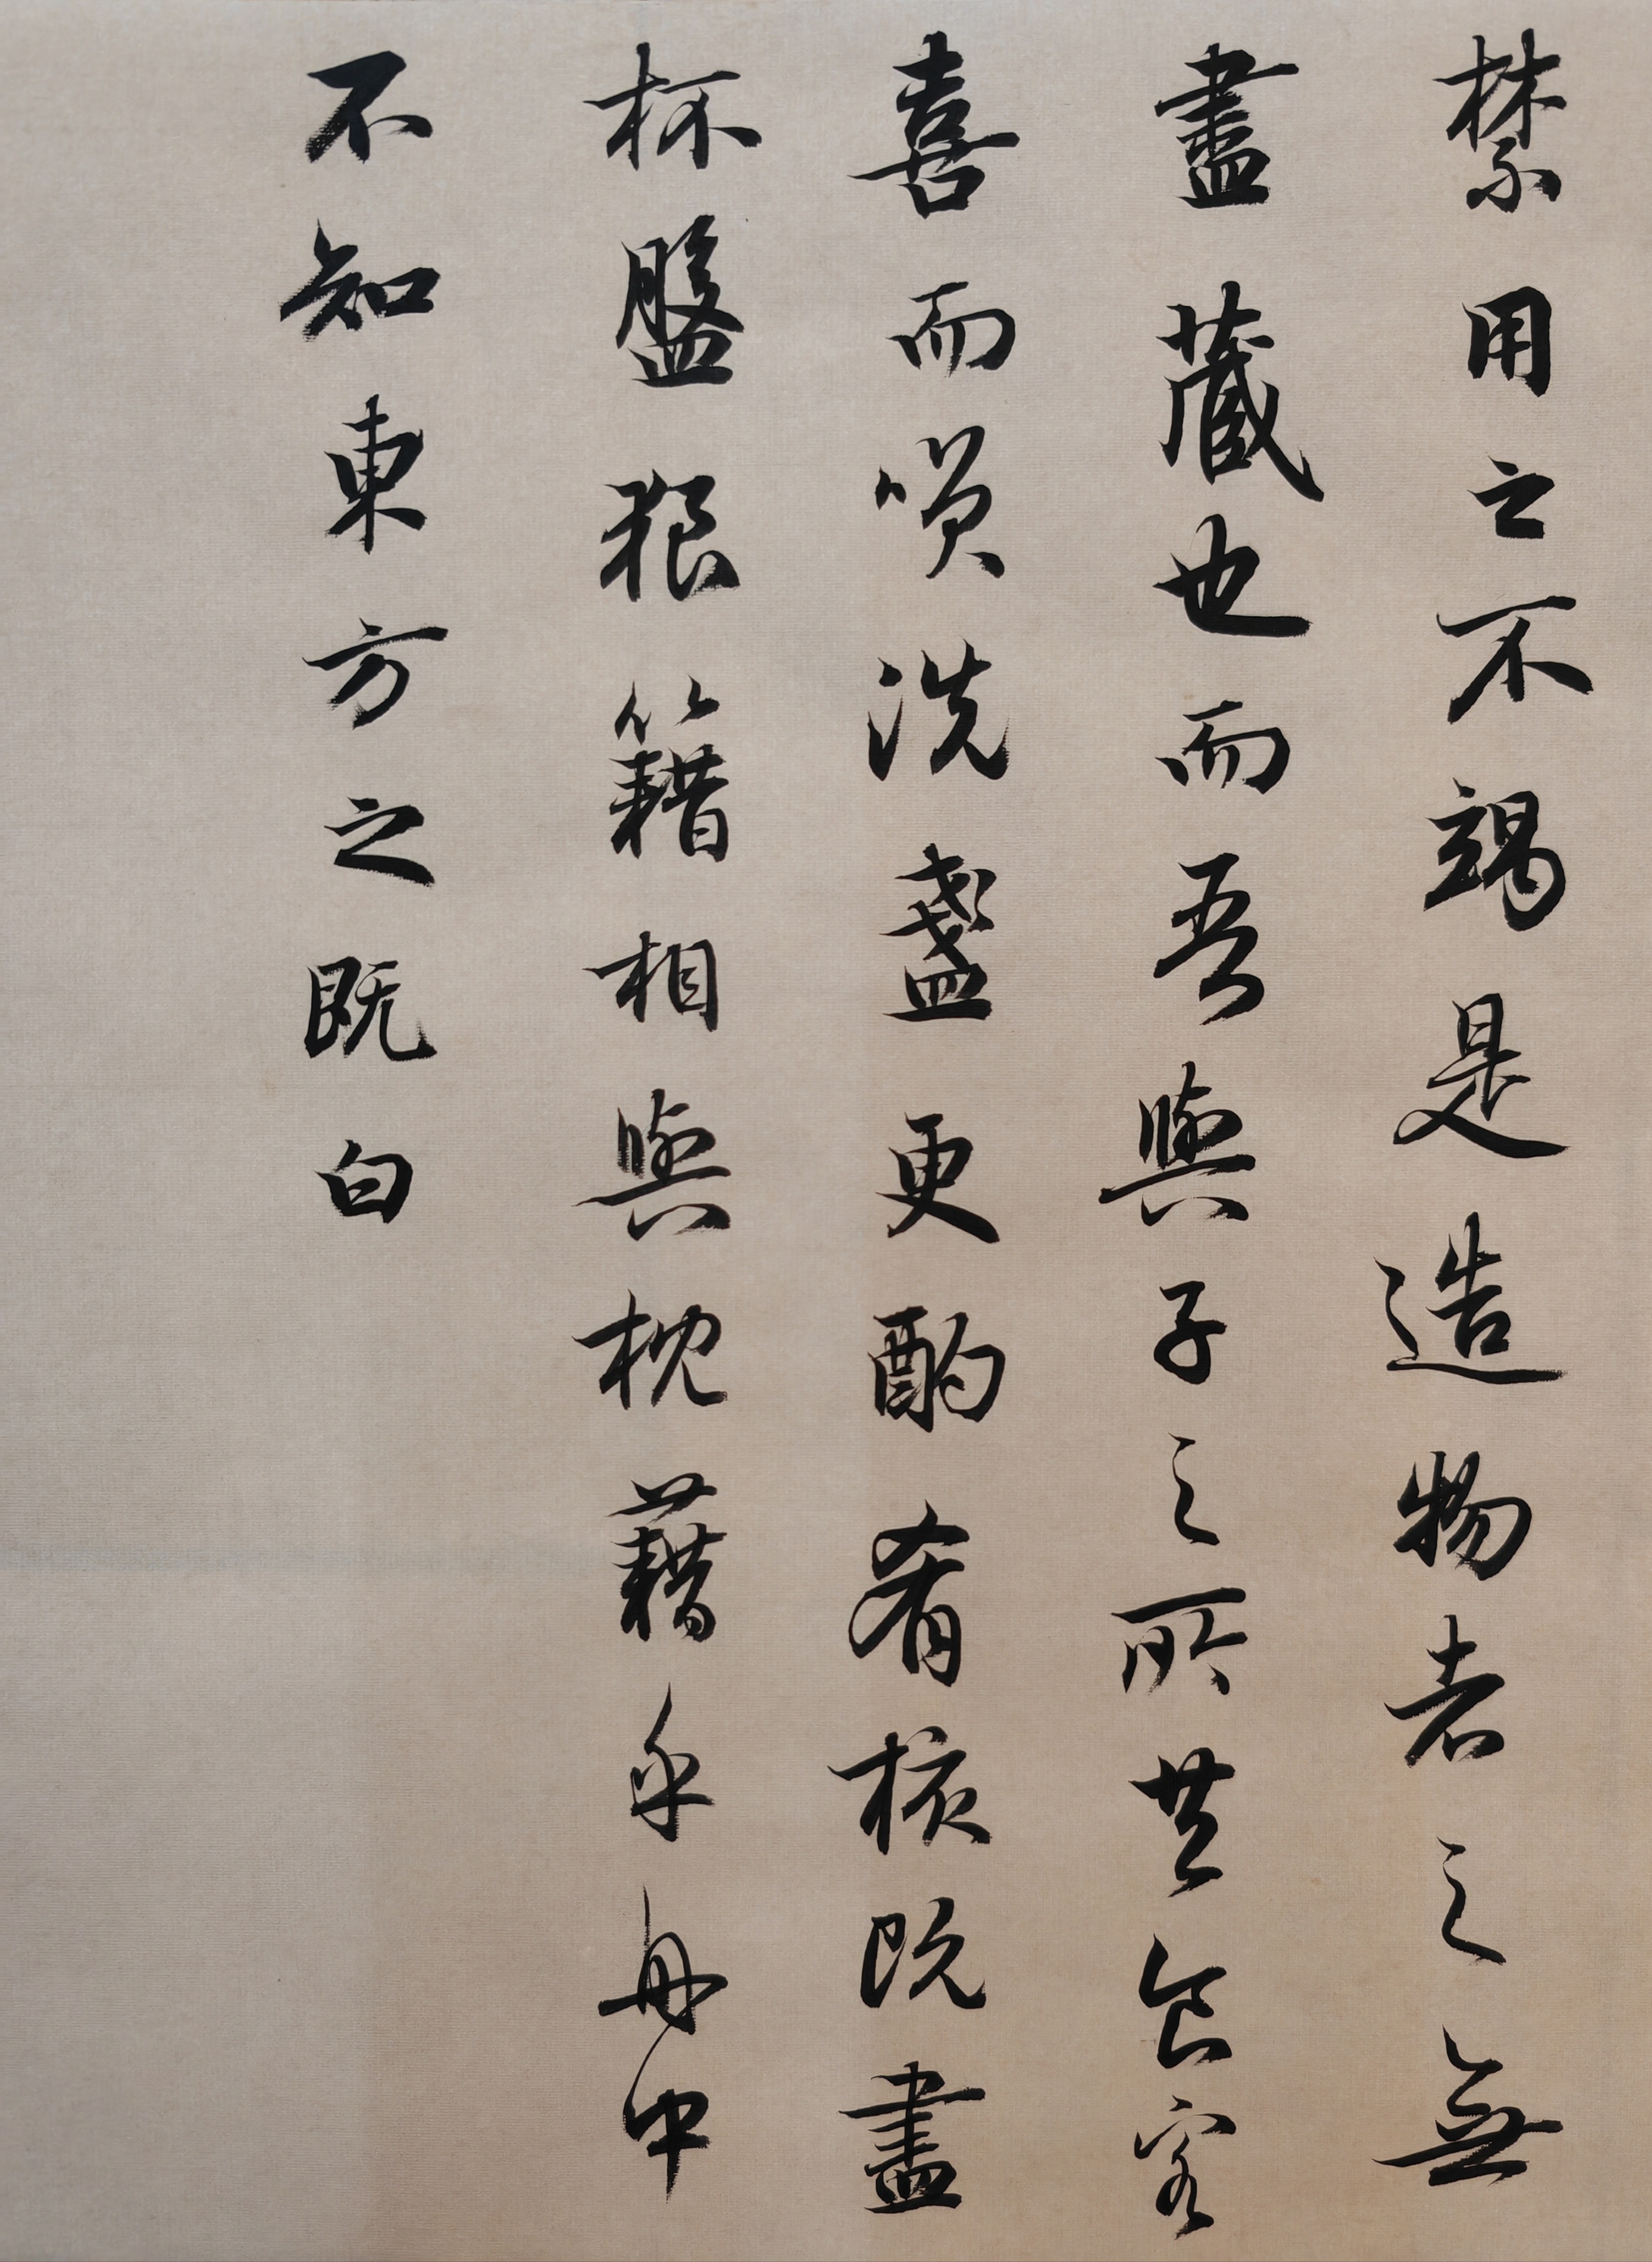 禁用之不竭是造物者之無
盡藏也而吾與子之所共食客
喜而笑洗盞更酌肴核既盡
杯盤狼籍相與枕藉乎舟中
不知東方之既白